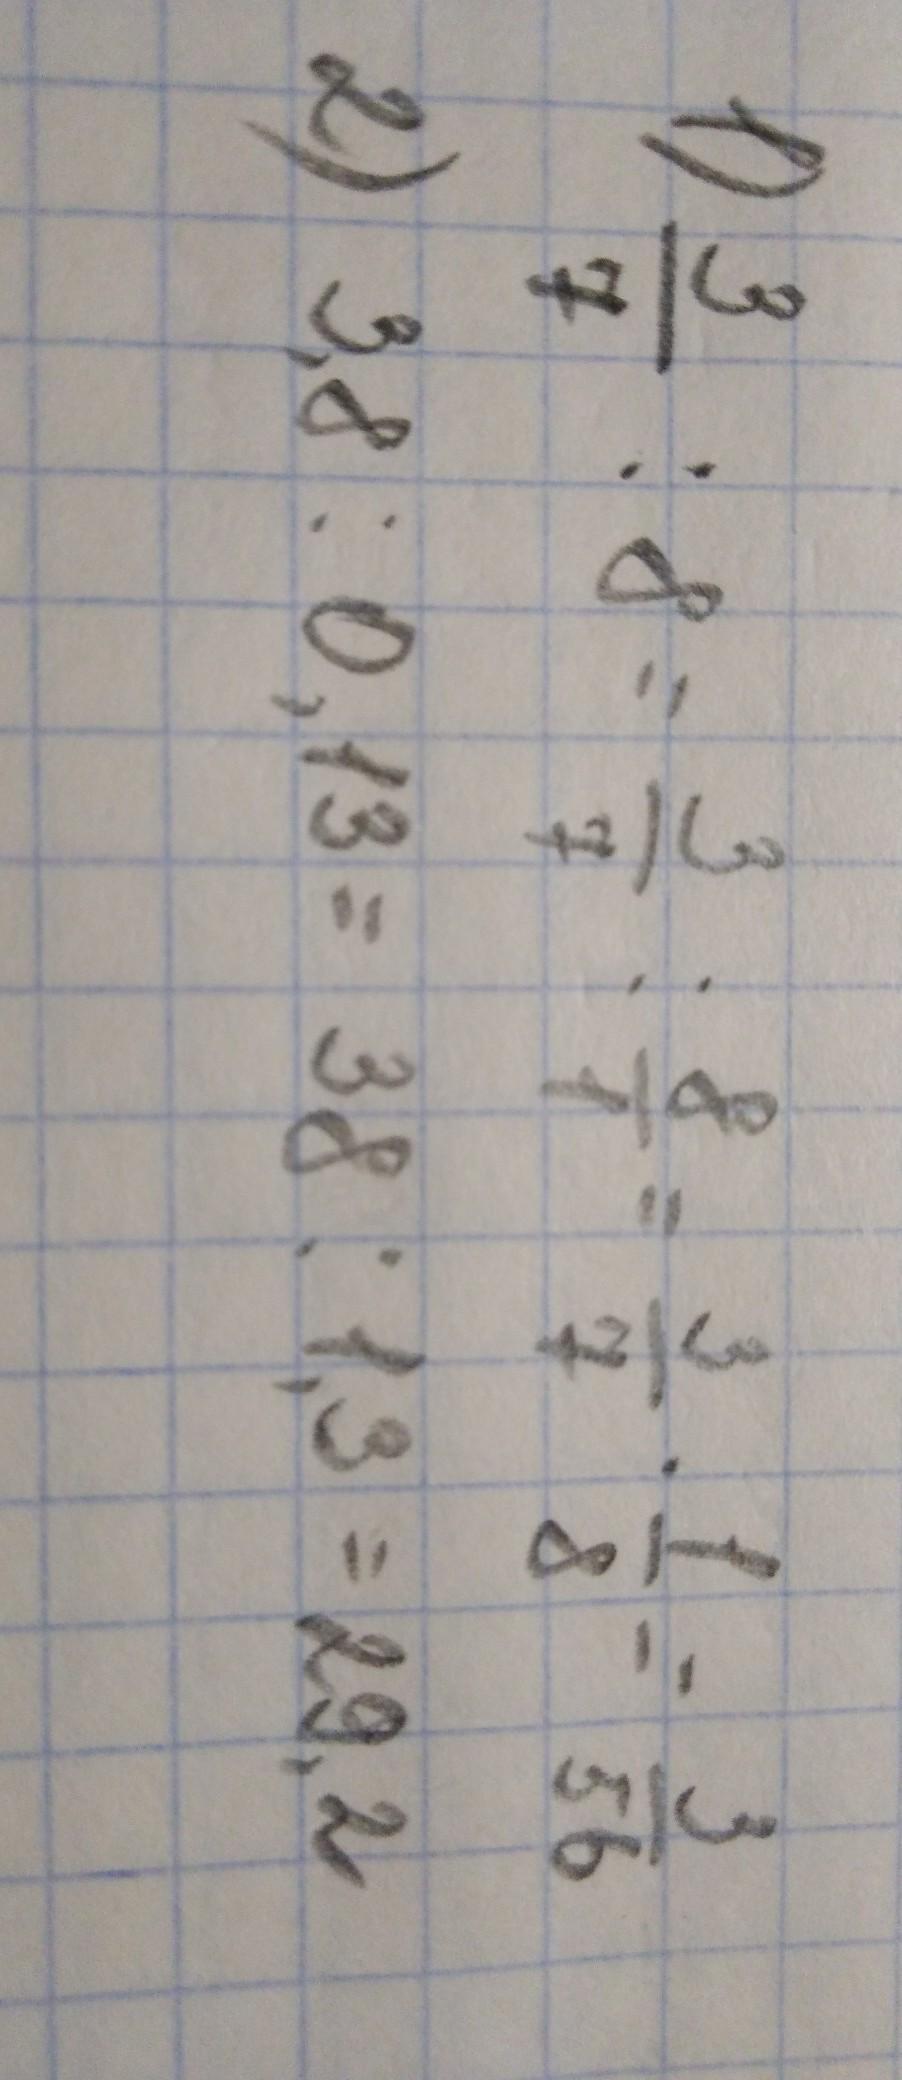 1) 3/7 : 8 = 3/7 : 8/1 = 3/7 · 1/8 = 3/56
2) 3,8 : 0,13 = 38 : 1,3 = 29,2